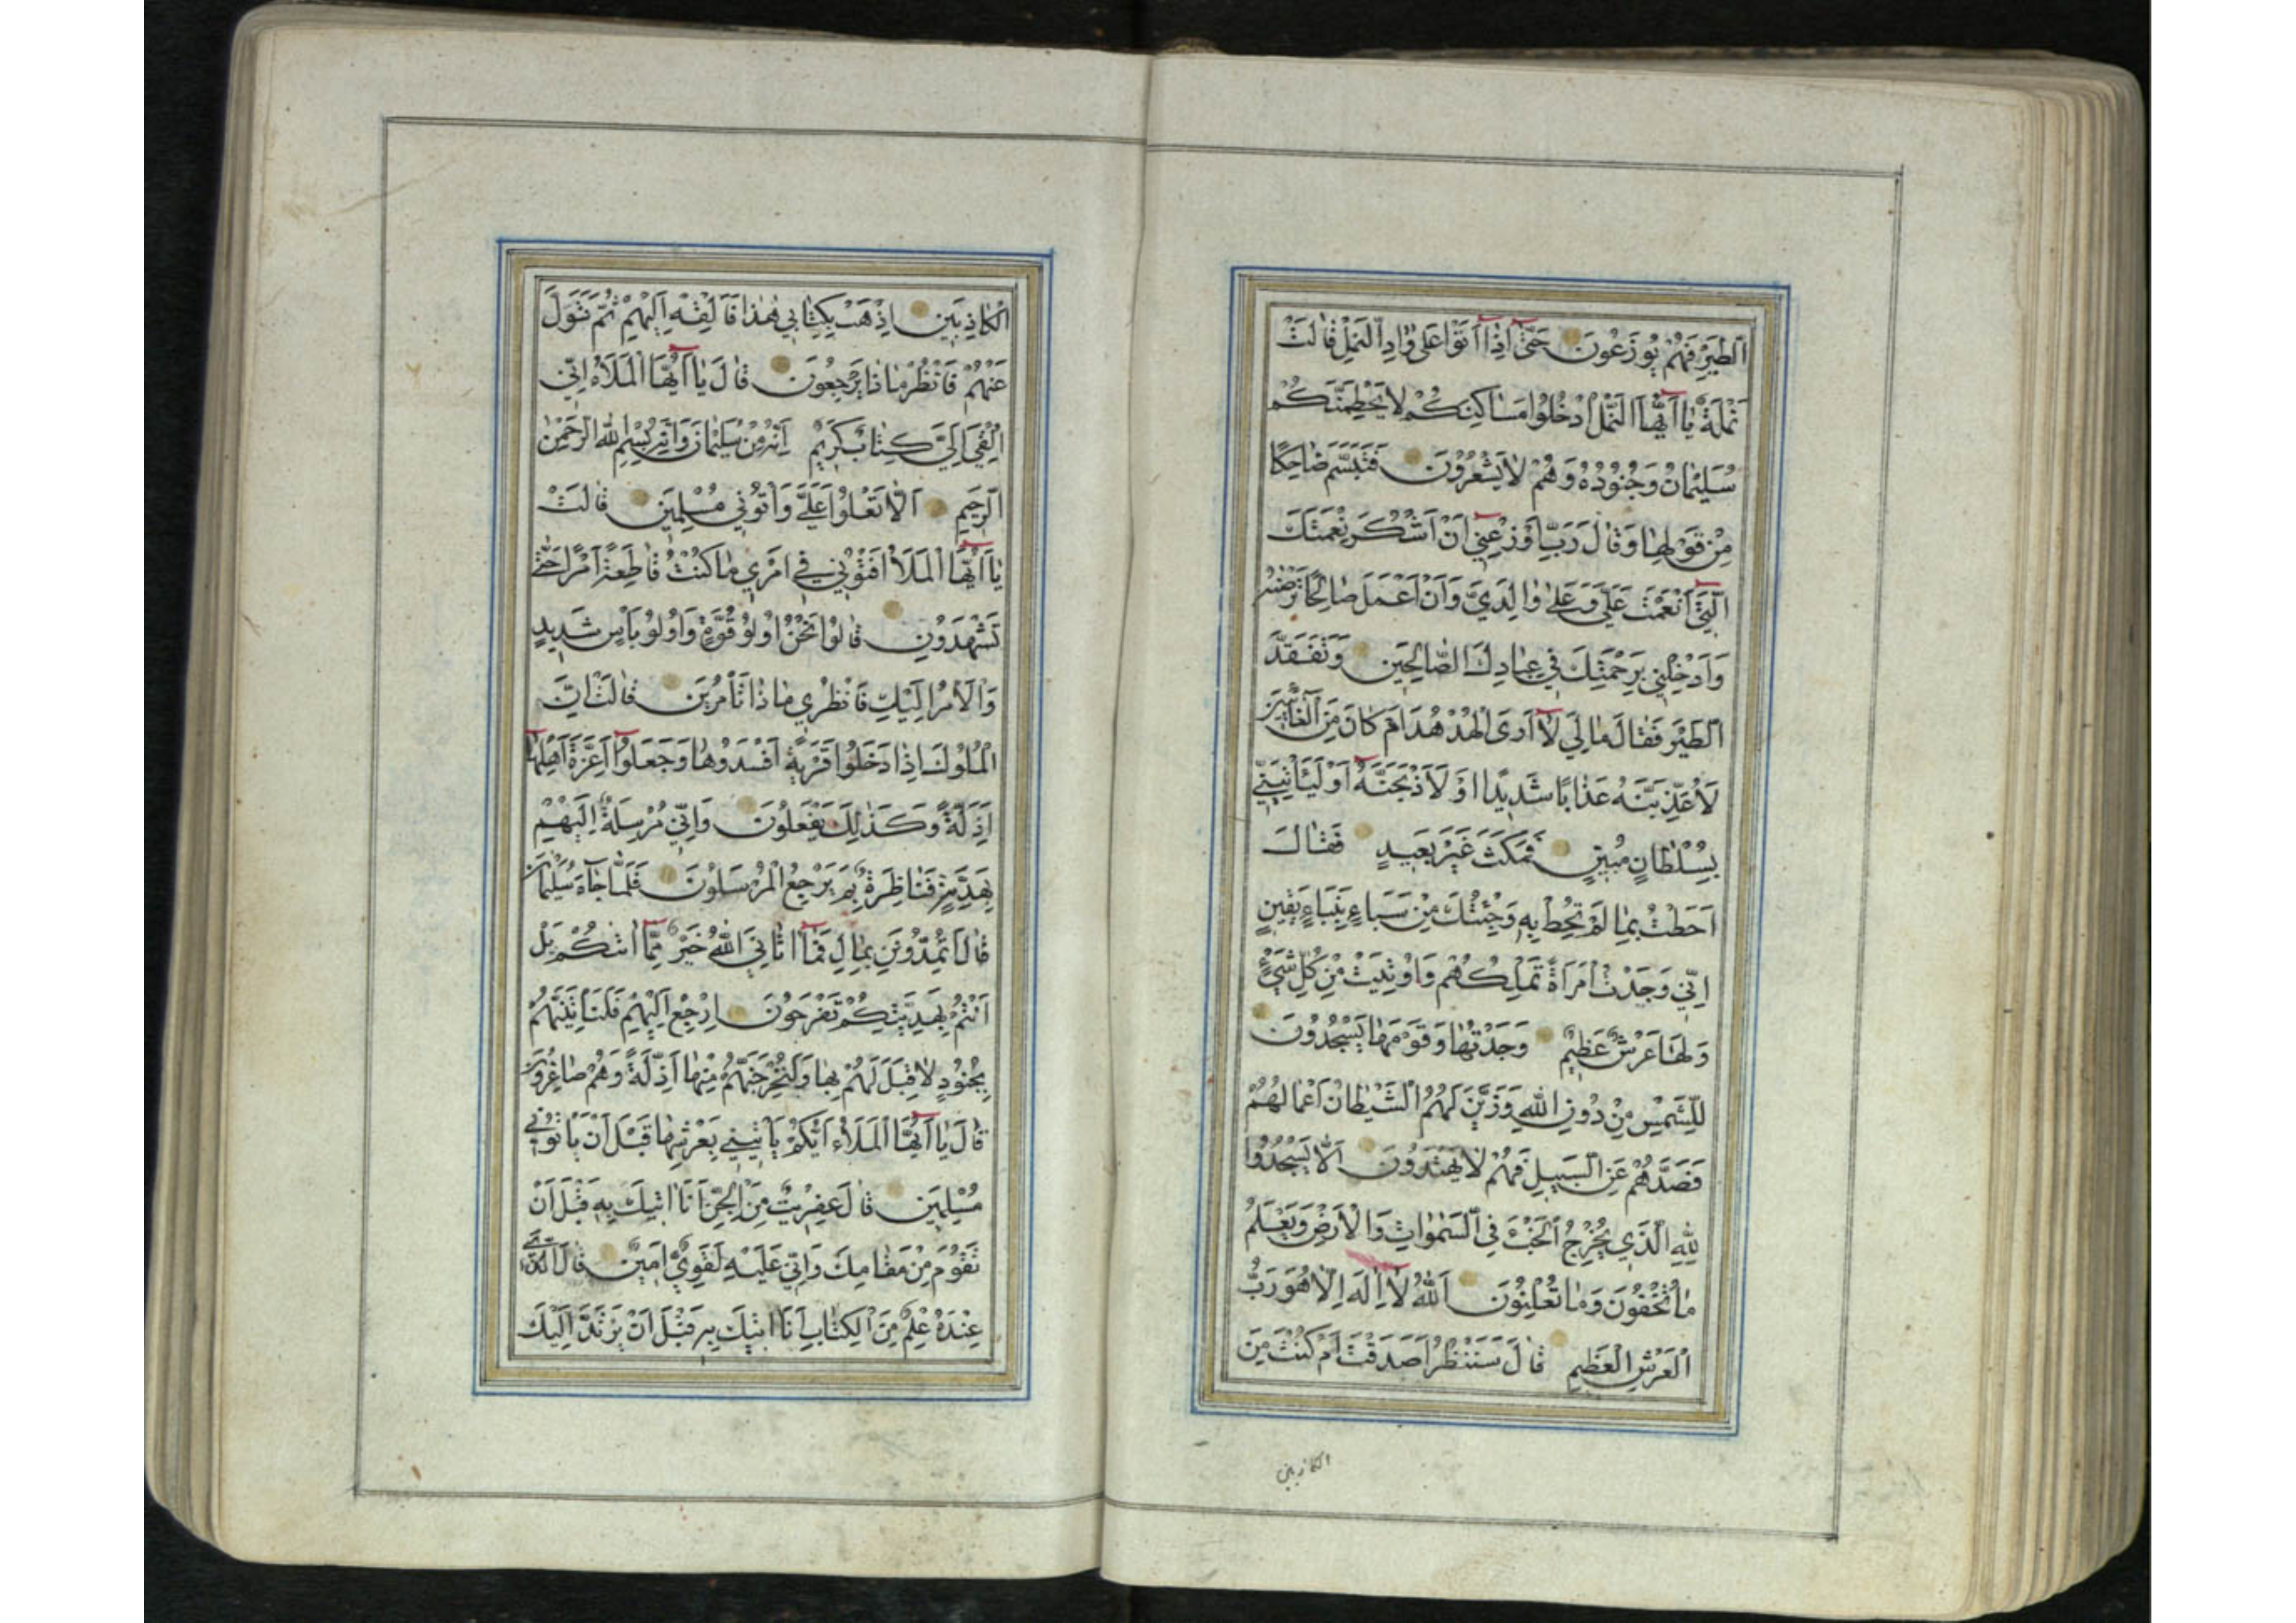 الطَّيْرِ فَهُمْ يُوزَعُونَ حَتّٰى اِذَا اَتَوْا عَلٰى وٰادِ النَّمْلِ قٰالَتْ
نَمْلَةٌ يٰا اَيُّهَا النَّمْلُ ادْخُلُوا مَسٰاكِنَكُمْ لٰا يَحْطِمَنَّكُمْ
سُلَيْمٰانُ وَجُنُودُهُ وَهُمْ لٰا يَشْعُرُونَ فَتَبَسَّمَ ضٰاحِكًا
مِنْ قَوْلِهٰا وَقٰالَ رَبِّ اَوْزِعْنِي اَنْ اَشْكُرَ نِعْمَتَكَ
الَّتِي اَنْعَمْتَ عَلَيَّ وَعَلٰى وٰالِدَيَّ وَاَنْ اَعْمَلَ صٰالِحًا تَرْضٰيهُ
وَاَدْخِلْنِي بِرَحْمَتِكَ فِي عِبٰادِكَ الصّٰالِحِينَ وَتَفَقَّدَ
الطَّيْرَ فَقٰالَ مٰا لِيَ لٰا اَرَى الْهُدْهُدَ اَمْ كٰانَ مِنَ الْغٰائِبِينَ
لَاُعَذِّبَنَّهُ عَذٰابًا شَدِيدًا اَوْ لَاَذْبَحَنَّهُ اَوْ لَيَأْتِيَنِّي
بِسُلْطٰانٍ مُبِينٍ فَمَكَثَ غَيْرَ بَعِيدٍ فَقٰالَ
اَحَطْتُ بِمٰا لَمْ تُحِطْ بِهِ وَجِئْتُكَ مِنْ سَبَاءٍ بِنَبَاءٍ يَقِينٍ
اِنِّي وَجَدْتُ امْرَاَةً تَمْلِكُهُمْ وَاُوتِيَتْ مِنْ كُلِّ شَيْءٍ
وَلَهٰا عَرْشٌ عَظِيمٌ وَجَدْتُهٰا وَقَوْمَهٰا يَسْجُدُونَ
لِلشَّمْسِ مِنْ دُونِ اللّٰهِ وَزَيَّنَ لَهُمُ الشَّيْطٰانُ اَعْمٰالَهُمْ
فَصَدَّهُمْ عَنِ السَّبِيلِ فَهُمْ لٰا يَهْتَدُونَ اَلّٰا يَسْجُدُوا
لِلّٰهِ الَّذِي يُخْرِجُ الْخَبْءَ فِي السَّمٰوٰاتِ وَالْاَرْضِ وَيَعْلَمُ
مٰا تُخْفُونَ وَمٰا تُعْلِنُونَ اَللّٰهُ لٰا اِلٰهَ اِلّٰا هُوَ رَبُّ
الْعَرْشِ الْعَظِيمِ قٰالَ سَنَنْظُرُ اَصَدَقْتَ اَمْ كُنْتَ مِنَ
الكاذبين
الْكٰاذِبِينَ اِذْهَبْ بِكِتٰابِي هٰذٰا فَاَلْقِهْ اِلَيْهِمْ ثُمَّ تَوَلَّ
عَنْهُمْ فَانْظُرْ مٰا ذٰا يَرْجِعُونَ قٰالَ يٰا اَيُّهَا الْمَلَاُ اِنِّي
اُلْقِيَ اِلَيَّ كِتٰابٌ كَرِيمٌ اِنَّهُ مِنْ سُلَيْمٰانَ وَاِنَّهُ بِسْمِ اللّٰهِ الرَّحْمٰنِ
الرَّحِيمِ اَلّٰا تَعْلُوا عَلَيَّ وَأْتُونِي مُسْلِمِينَ قٰالَتْ
يٰا اَيُّهَا الْمَلَاُ اَفْتُونِي فِي اَمْرِي مٰا كُنْتُ قٰاطِعَةً اَمْرًا حَتّٰى
تَشْهَدُونِ قٰالُوا نَحْنُ اُولُو قُوَّةٍ وَاُولُو بَأْسٍ شَدِيدٍ
وَالْاَمْرُ اِلَيْكِ فَانْظُرِي مٰا ذٰا تَأْمُرِينَ قٰالَتْ اِنَّ
الْمُلُوكَ اِذٰا دَخَلُوا قَرْيَةً اَفْسَدُوهٰا وَجَعَلُوا اَعِزَّةَ اَهْلِهٰا
اَذِلَّةً وَكَذٰلِكَ يَفْعَلُونَ وَاِنِّي مُرْسِلَةٌ اِلَيْهِمْ
بِهَدِيَّةٍ فَنٰاظِرَةٌ بِمَ يَرْجِعُ الْمُرْسَلُونَ فَلَمّٰا جٰاءَ سُلَيْمٰانَ
قٰالَ اَتُمِدُّونَنِ بِمٰالٍ فَمٰا اٰتٰانِيَ اللّٰهُ خَيْرٌ مِمّٰا اٰتٰكُمْ بَلْ
اَنْتُمْ بِهَدِيَّتِكُمْ تَفْرَحُونَ اِرْجِعْ اِلَيْهِمْ فَلَنَأْتِيَنَّهُمْ
بِجُنُودٍ لٰا قِبَلَ لَهُمْ بِهٰا وَلَنُخْرِجَنَّهُمْ مِنْهٰا اَذِلَّةً وَهُمْ صٰاغِرُونَ
قٰالَ يٰا اَيُّهَا الْمَلَاُ اَيُّكُمْ يَأْتِينِي بِعَرْشِهٰا قَبْلَ اَنْ يَأْتُونِي
مُسْلِمِينَ قٰالَ عِفْرِيتٌ مِنَ الْجِنِّ اَنَا اٰتِيكَ بِهِ قَبْلَ اَنْ
تَقُومَ مِنْ مَقٰامِكَ وَاِنِّي عَلَيْهِ لَقَوِيٌّ اَمِينٌ قٰالَ الَّذِي
عِنْدَهُ عِلْمٌ مِنَ الْكِتٰابِ اَنَا اٰتِيكَ بِهِ قَبْلَ اَنْ يَرْتَدَّ اِلَيْكَ